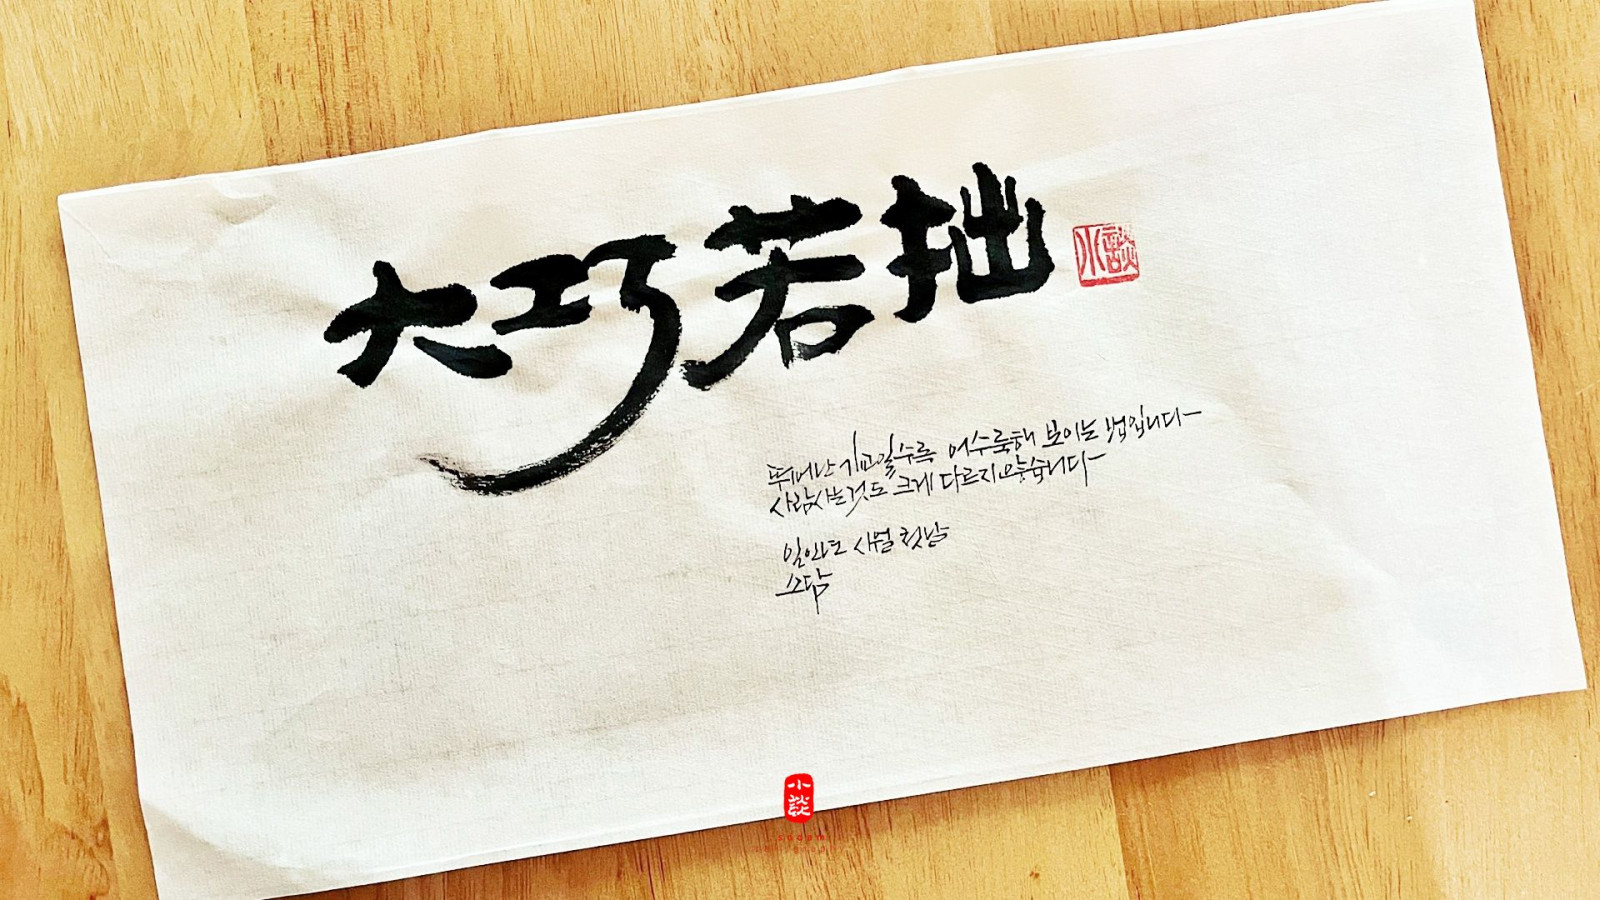 大巧若拙
小談
뛰어난 기교일수록 어수룩해 보이는 법입니다
사람사는것도 크게 다르지않습니다
사월 첫날
소담
小談